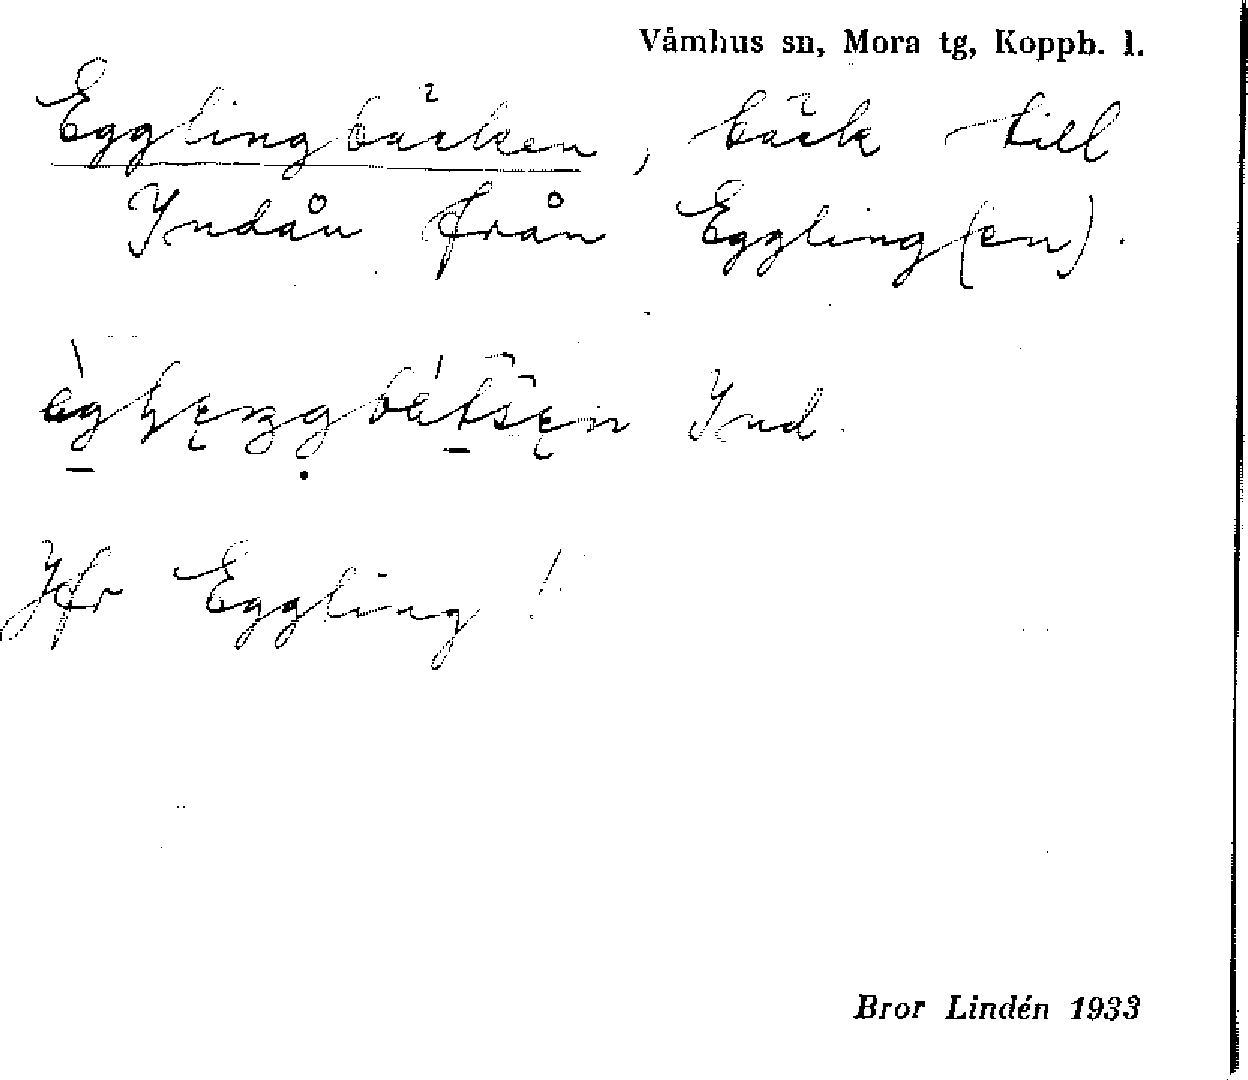 Våmhus sn, Mora tg, Koppb. l.
Egglingbäcken, bäck till
Yndån från Eggling(en).
Ynd.
Jfr Eggling!
Bror Lindén 1933